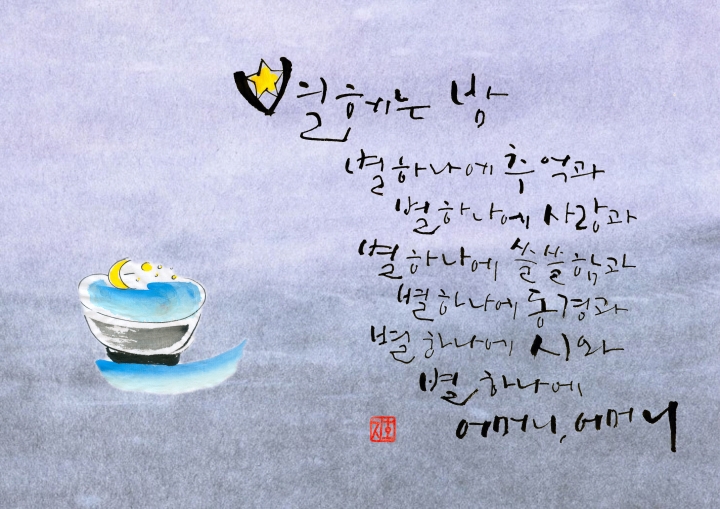 별 헤는 밤
별 하나에 추억과
별 하나에 사랑과
별 하나에 쓸쓸함과
별 하나에 동경과
별 하나에 시와
별 하나에
어머니, 어머니